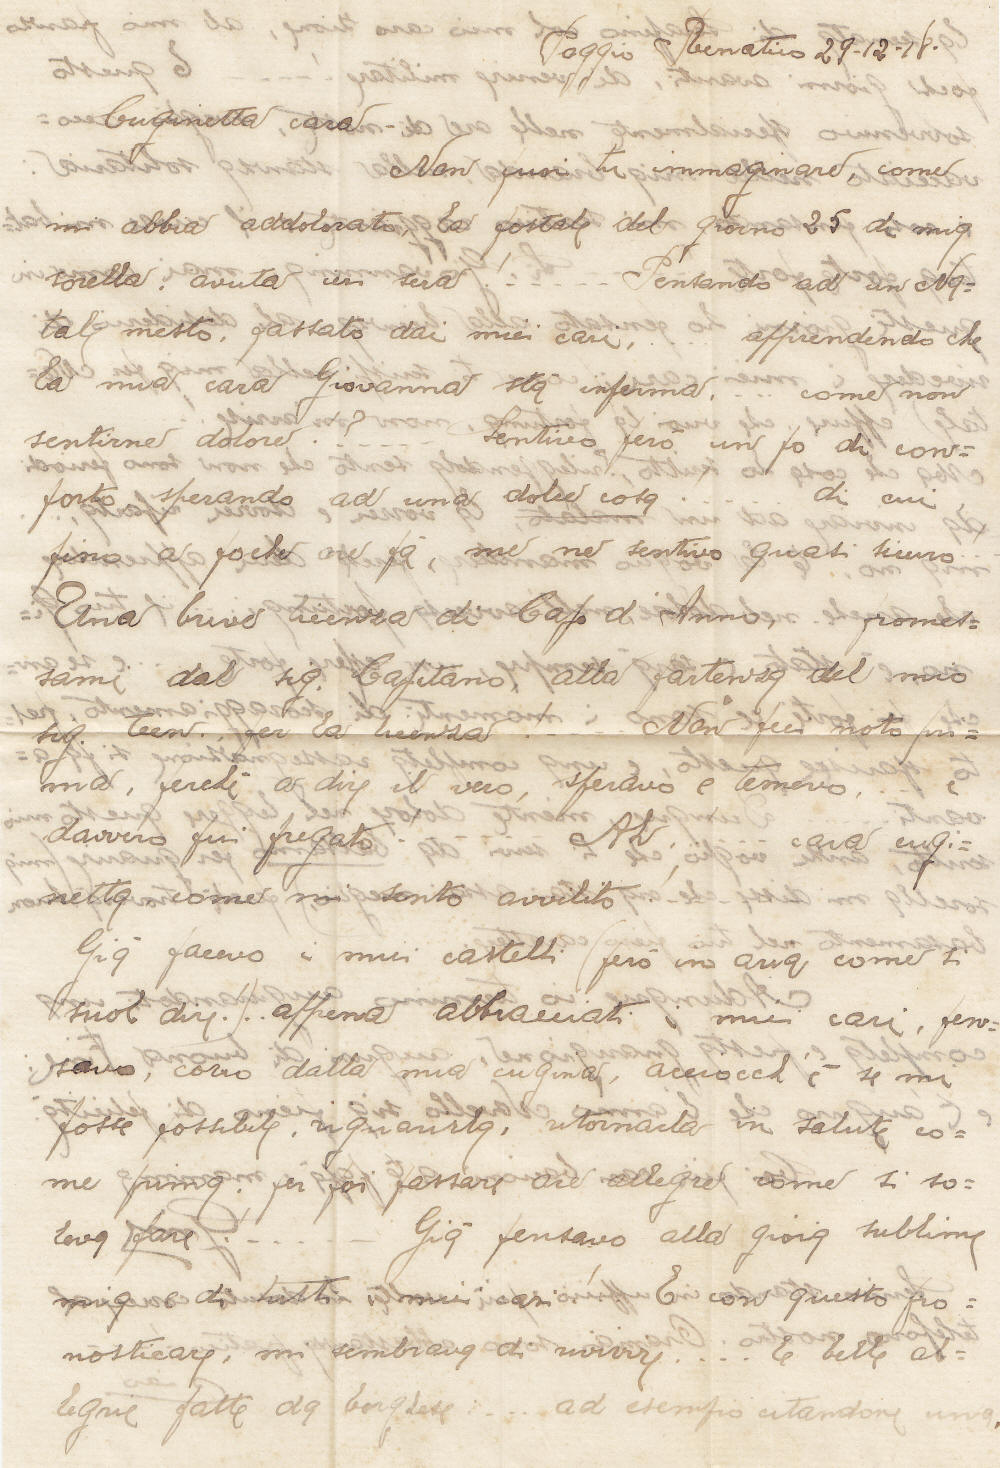 Poggio Renatico 29-12-18.
Cuginetta cara -
Non puoi tu immaginare, come
mi abbia addolorato, la postale del giorno 25 di mia
sorella: avuta ieri sera! ----- Pensando ad un Na=
tale mesto, passato dai miei cari, .... apprendendo che
la mia cara Giovanna sta inferma, ... come non
sentirne dolore.? ----- Sentivo però un pò di con=
forto, sperando ad una dolce cosa .... di cui
fino a poche ore fà, me ne sentivo quasi sicuro
Una breve licenza di Capo d'Anno, promes=
sami dal sig. Capitano, alla partenza del mio
sig. Ten. per la licenza ! .... Non feci noto pri=
ma, perchè a dire il vero, speravo e temevo, ... e
davvero fui fregato. Ah, cara cugi=
netta come mi sento avvilito!
Già facevo i miei castelli (però in aria come si
suol dire.).. appena abbracciati i miei cari, pen=
savo, corro dalla mia cugina, acciocchè se mi
fosse possibile, riguarirla, ritornarla in salute co=
me prima: per poi passare ore allegre come si so=
leva fare! ----- Già pensavo alla gioia sublime
mia e di tutti i miei cari! E con questo pro=
nosticare, mi sembrava di rivivere .... le belle al=
legrie fatte da borghese .... ad esempio citandone una,